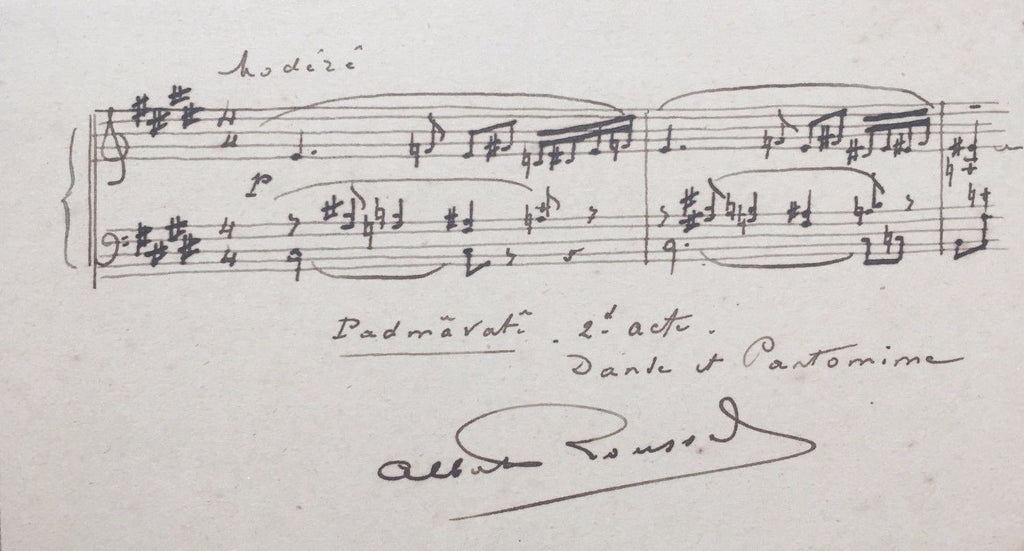 Modéré
4 4
p
4 4
Padmâvatî. 2d acte.
Danse et Pantomime
Albert Roussel